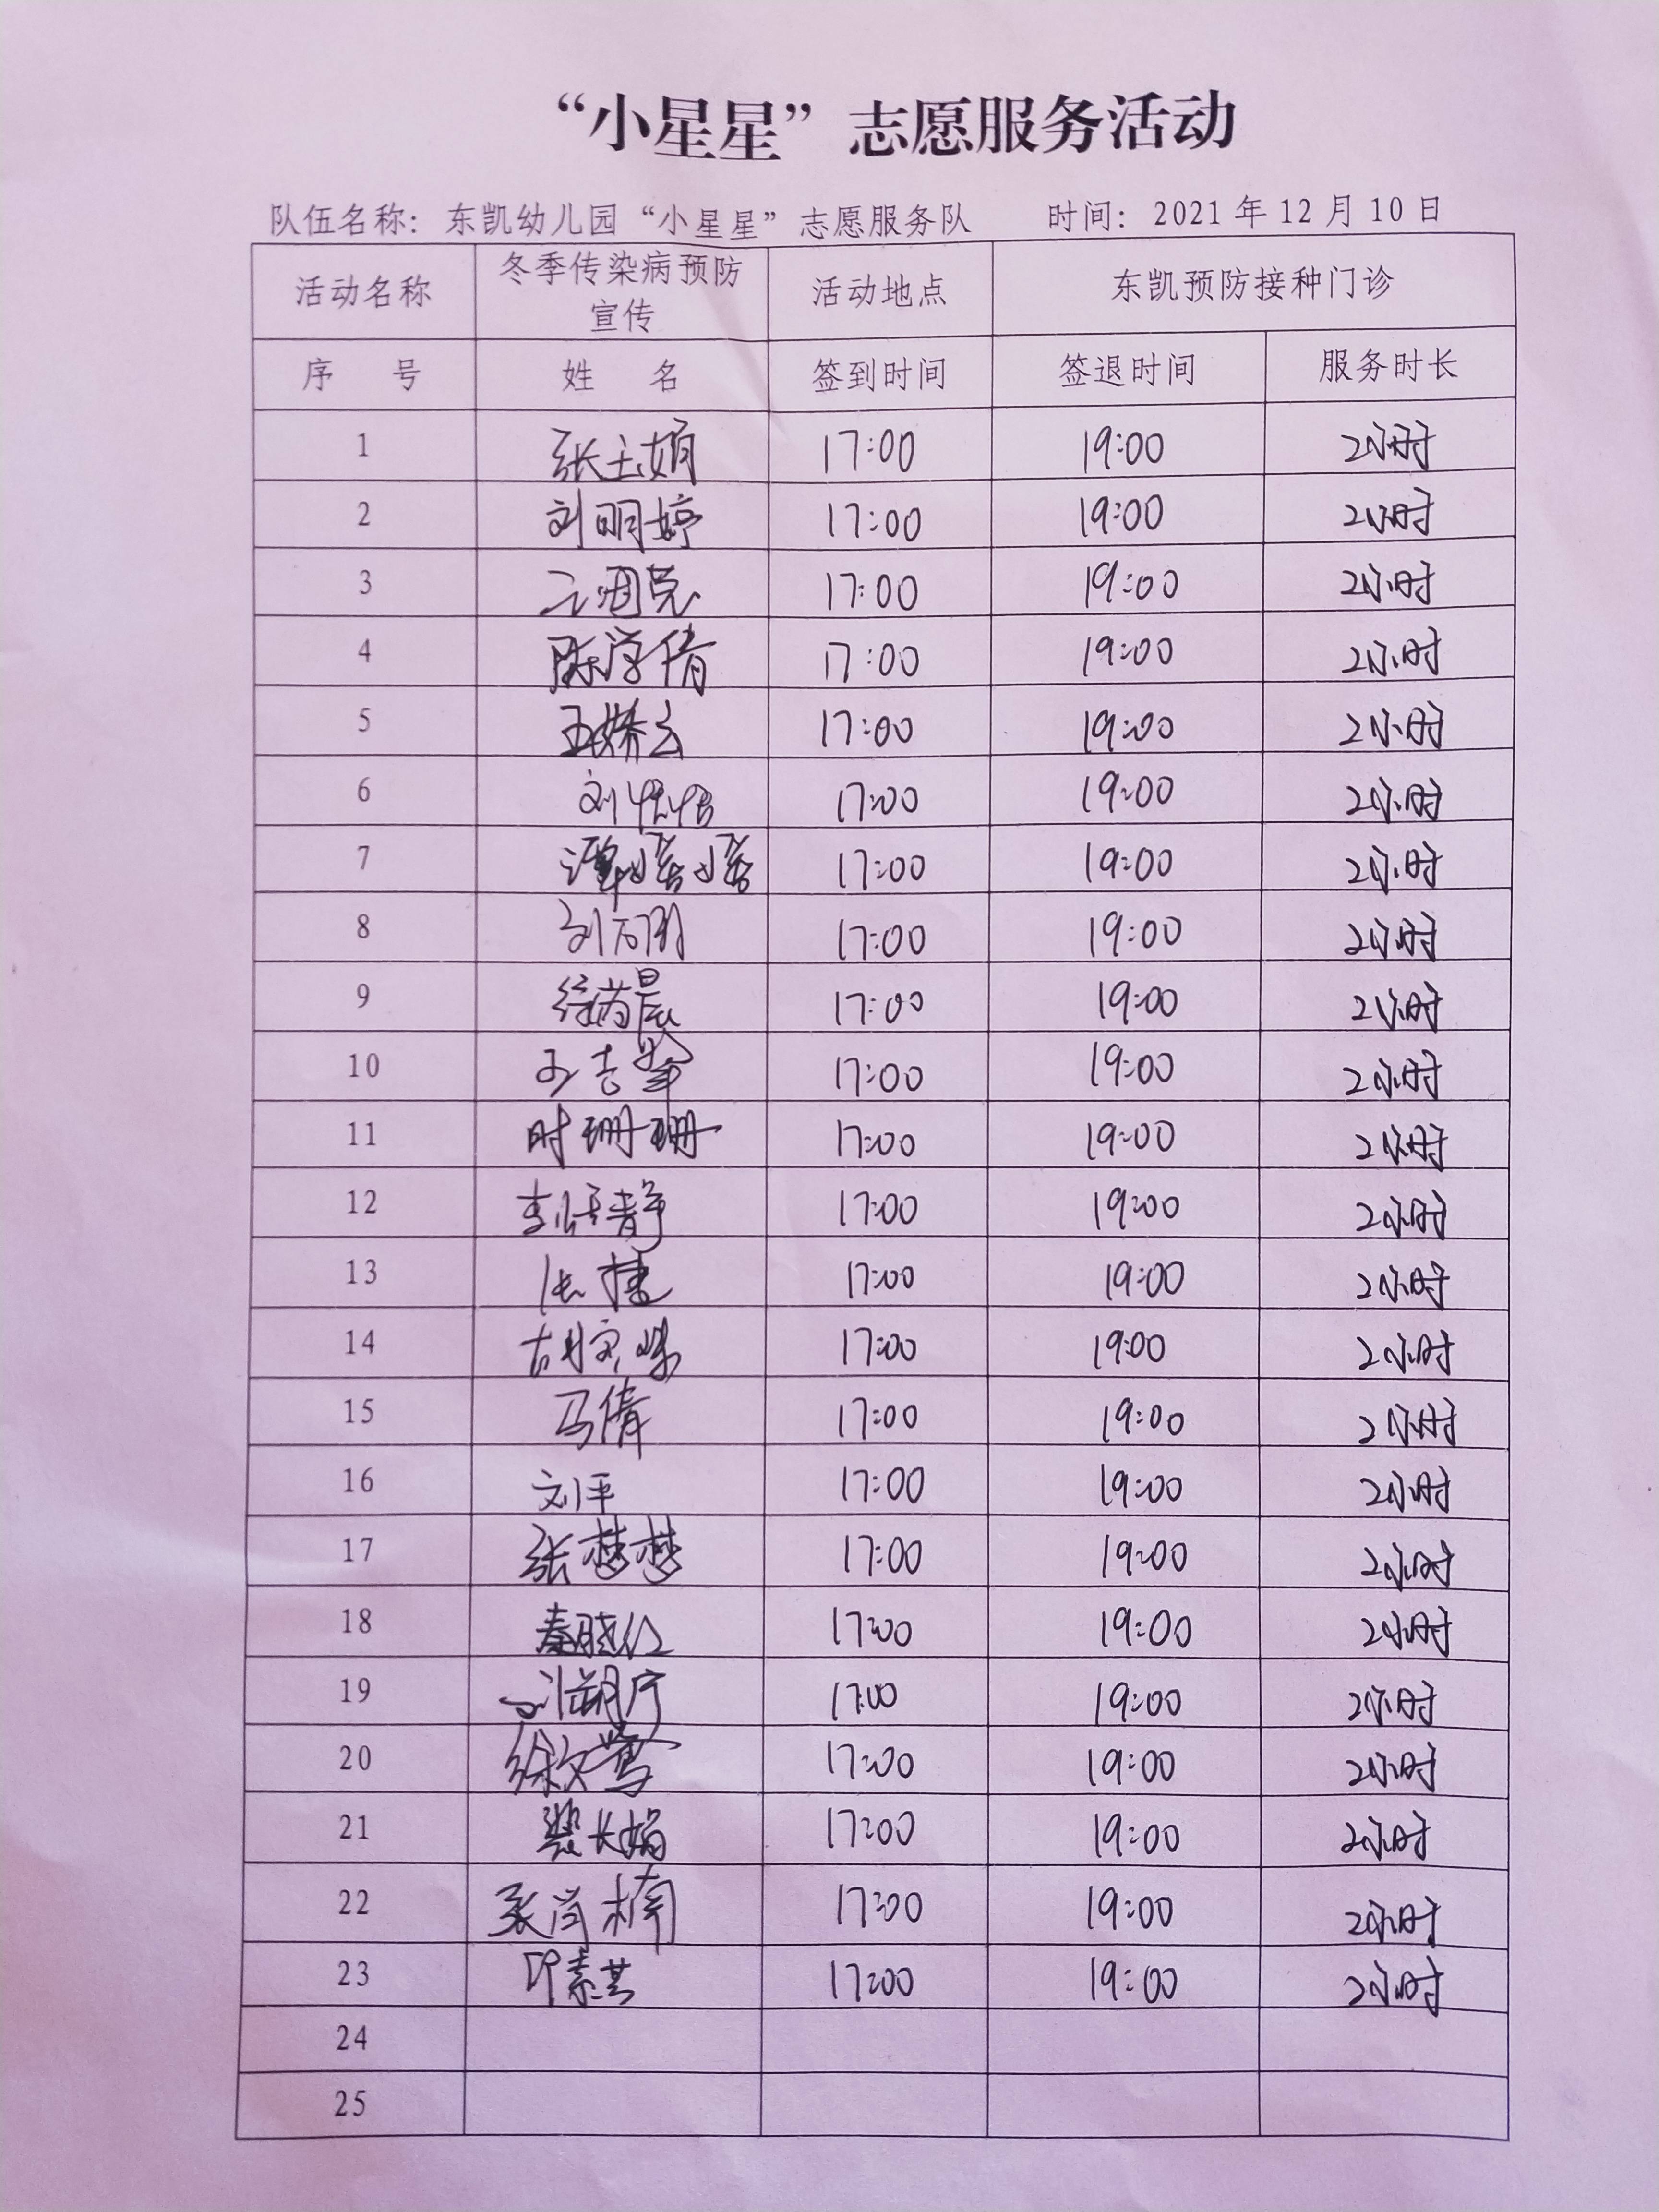 “小星星”志愿服务活动
队伍名称：东凯幼儿园“小星星”志愿服务队 时间：2021年12月10日
活动名称 冬季传染病预防宣传 活动地点 东凯预防接种门诊
序 号 姓 名 签到时间 签退时间 服务时长
1 张玉娟 17:00 19:00 2小时
2 刘明婷 17:00 19:00 2小时
3 17:00 19:00 2小时
4 陈学倩 17:00 19:00 2小时
5 王娇云 17:00 19:00 2小时
6 刘 17:00 19:00 2小时
7 谭媛媛 17:00 19:00 2小时
8 刘 17:00 19:00 2小时
9 徐芮晨 17:00 19:00 2小时
10 17:00 19:00 2小时
11 时珊珊 17:00 19:00 2小时
12 李 静 17:00 19:00 2小时
13 张捷 17:00 19:00 2小时
14 胡 17:00 19:00 2小时
15 马倩 17:00 19:00 2小时
16 刘平 17:00 19:00 2小时
17 张梦梦 17:00 19:00 2小时
18 秦晓红 17:00 19:00 2小时
19 刘 17:00 19:00 2小时
20 徐文莺 17:00 19:00 2小时
21 裴长娟 17:00 19:00 2小时
22 张 楠 17:00 19:00 2小时
23 印素芸 17:00 19:00 2小时
24
25